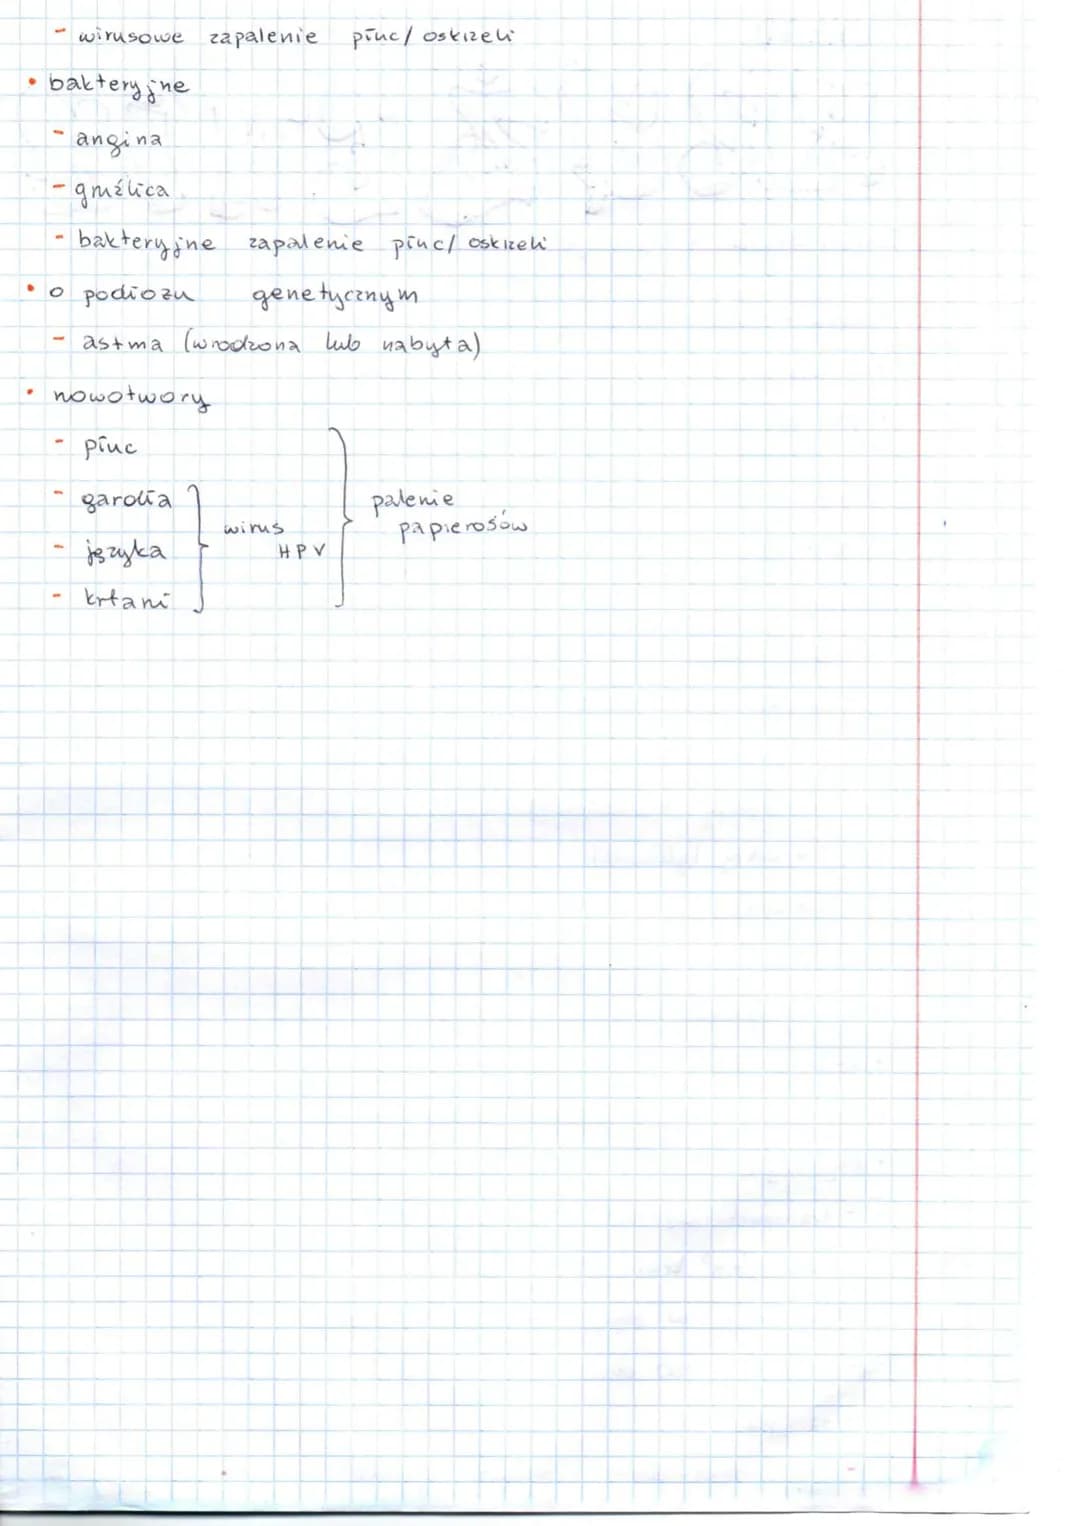 - wirusowe zapalenie płuc/ oskrzeli
• bakteryjne
- angina
- gruźlica
- bakteryjne zapalenie płuc/ oskrzeli
• o podłożu genetycznym
- astma (wrodzona lub nabyta)
• nowotwory
- płuc
- gardła
- języka
- krtani
wirus
HPV
palenie
papierosów